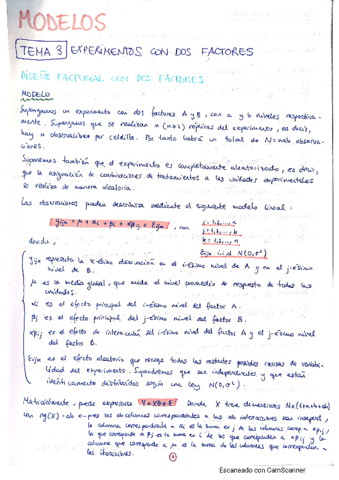 MODELOS
TEMA 3 EXPERIMENTOS CON DOS FACTORES
DISEÑO FACTORIAL CON DOS FACTORES
MODELO
Supongamos un experimento con dos factores A y B, con a y b niveles respectiva-
mente. Supongamos que se realizan n (n≥2) réplicas del experimento, es decir,
hay n observaciones por celdilla. Por tanto habrá un total de N=nab observa-
ciones.
Suponemos también que el experimento es completamente aleatorizado, es decir,
que la asignación de combinaciones de tratamientos a las unidades experimentales
se realiza de manera aleatoria.
Las observaciones pueden describirse mediante el siguiente modelo lineal:
Yijk = μ + αi + βj + αβij + Eijk, con
i=1,2,...,a
j=1,2,...,b
k=1,2,...,n
Eijk iid N(0,σ²)
donde,
Yijk representa la k-ésima observación en el i-ésimo nivel de A y en el j-ésimo
nivel de B.
μ es la media global, que mide el nivel promedio de respuesta de todas las
unidades.
αi es el efecto principal del i-ésimo nivel del factor A.
βj es el efecto principal del j-ésimo nivel del factor B.
αβij es el efecto de interacción del i-ésimo nivel del factor A y el j-ésimo nivel
del factor B.
Eijk es el efecto aleatorio que recoge todas las restantes posibles causas de variabi-
lidad del experimento. Supondremos que son independientes y que están
idénticamente distribuidas según una ley N(0,σ²).
Matricialmente, puede expresarse Y=Xβ+E. Donde X tiene dimensiones N×(1+a+b+ab)
con rg(X)=ab pues las ab columnas correspondientes a las ab interacciones son indepe,
la columna correspondiente a αi es la suma en j de las columnas corresp. a αβij,
la que corresponde a βj es la suma en i de las que corresponden a αβij y la
columna que corresponde a μ es la suma de las columnas que corresponden a
las interacciones.
1
Escaneado con CamScanner